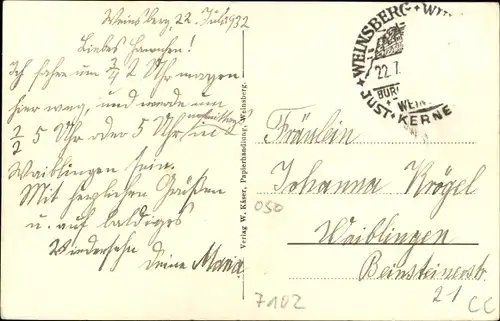 Weinsberg, 22. Juli 1932
Liebes Hannchen!
Ich fahre um 3/4 2 Uhr morgen
hier weg, und werde um
1/2 5 Uhr oder 5 Uhr nachmittags in
Waiblingen sein.
Mit herzlichen Grüßen
u. auf baldiges
Wiedersehn
Deine Maria
Verlag W. Käser, Papierhandlung, Weinsberg.
WEINSBERG
22.7.
BUR
WEI
JUST. KERNE
Fräulein
Johanna Krögel
Waiblingen
Beinsteinerstr.
21
050
7102
CC